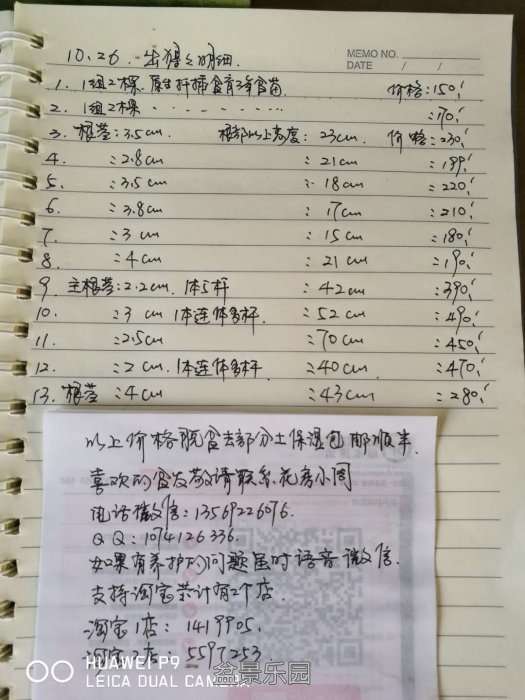 MEMO NO.
DATE / /
10.26.出猩之明细.
1. 1组2棵 原生扦插盆育3年盆苗 价格:150.
2. 1组2棵 . . . . . . . . :170.
3. 根茎:3.5cm 根部以上高度:23cm. 价格:230.
4. :2.8cm :21cm :199.
5. :3.5cm :18cm :220.
6. :3.8cm :17cm :210.
7 :3cm :15cm :180.
8. :4cm :21cm :190.
9. 主根茎:2.2cm.1本5杆 :42cm :390.
10. :3cm 1本连体多杆. :52cm :490.
11. :2.5cm :70cm :450.
12. :2cm.1本连体多杆 :40cm :470.
13. 根茎:4cm :43cm :280.
以上价格脱盆去部分土保湿包邮顺丰.
喜欢的盆友敬请联系花房小周
电话微信:13569226076.
QQ:1074126336.
如果有养护的问题届时语音微信.
支持淘宝共计有2个店.
淘宝1店:1419905.
淘宝2店:5597253.
HUAWEI P9
LEICA DUAL CAMERA
盆景乐园